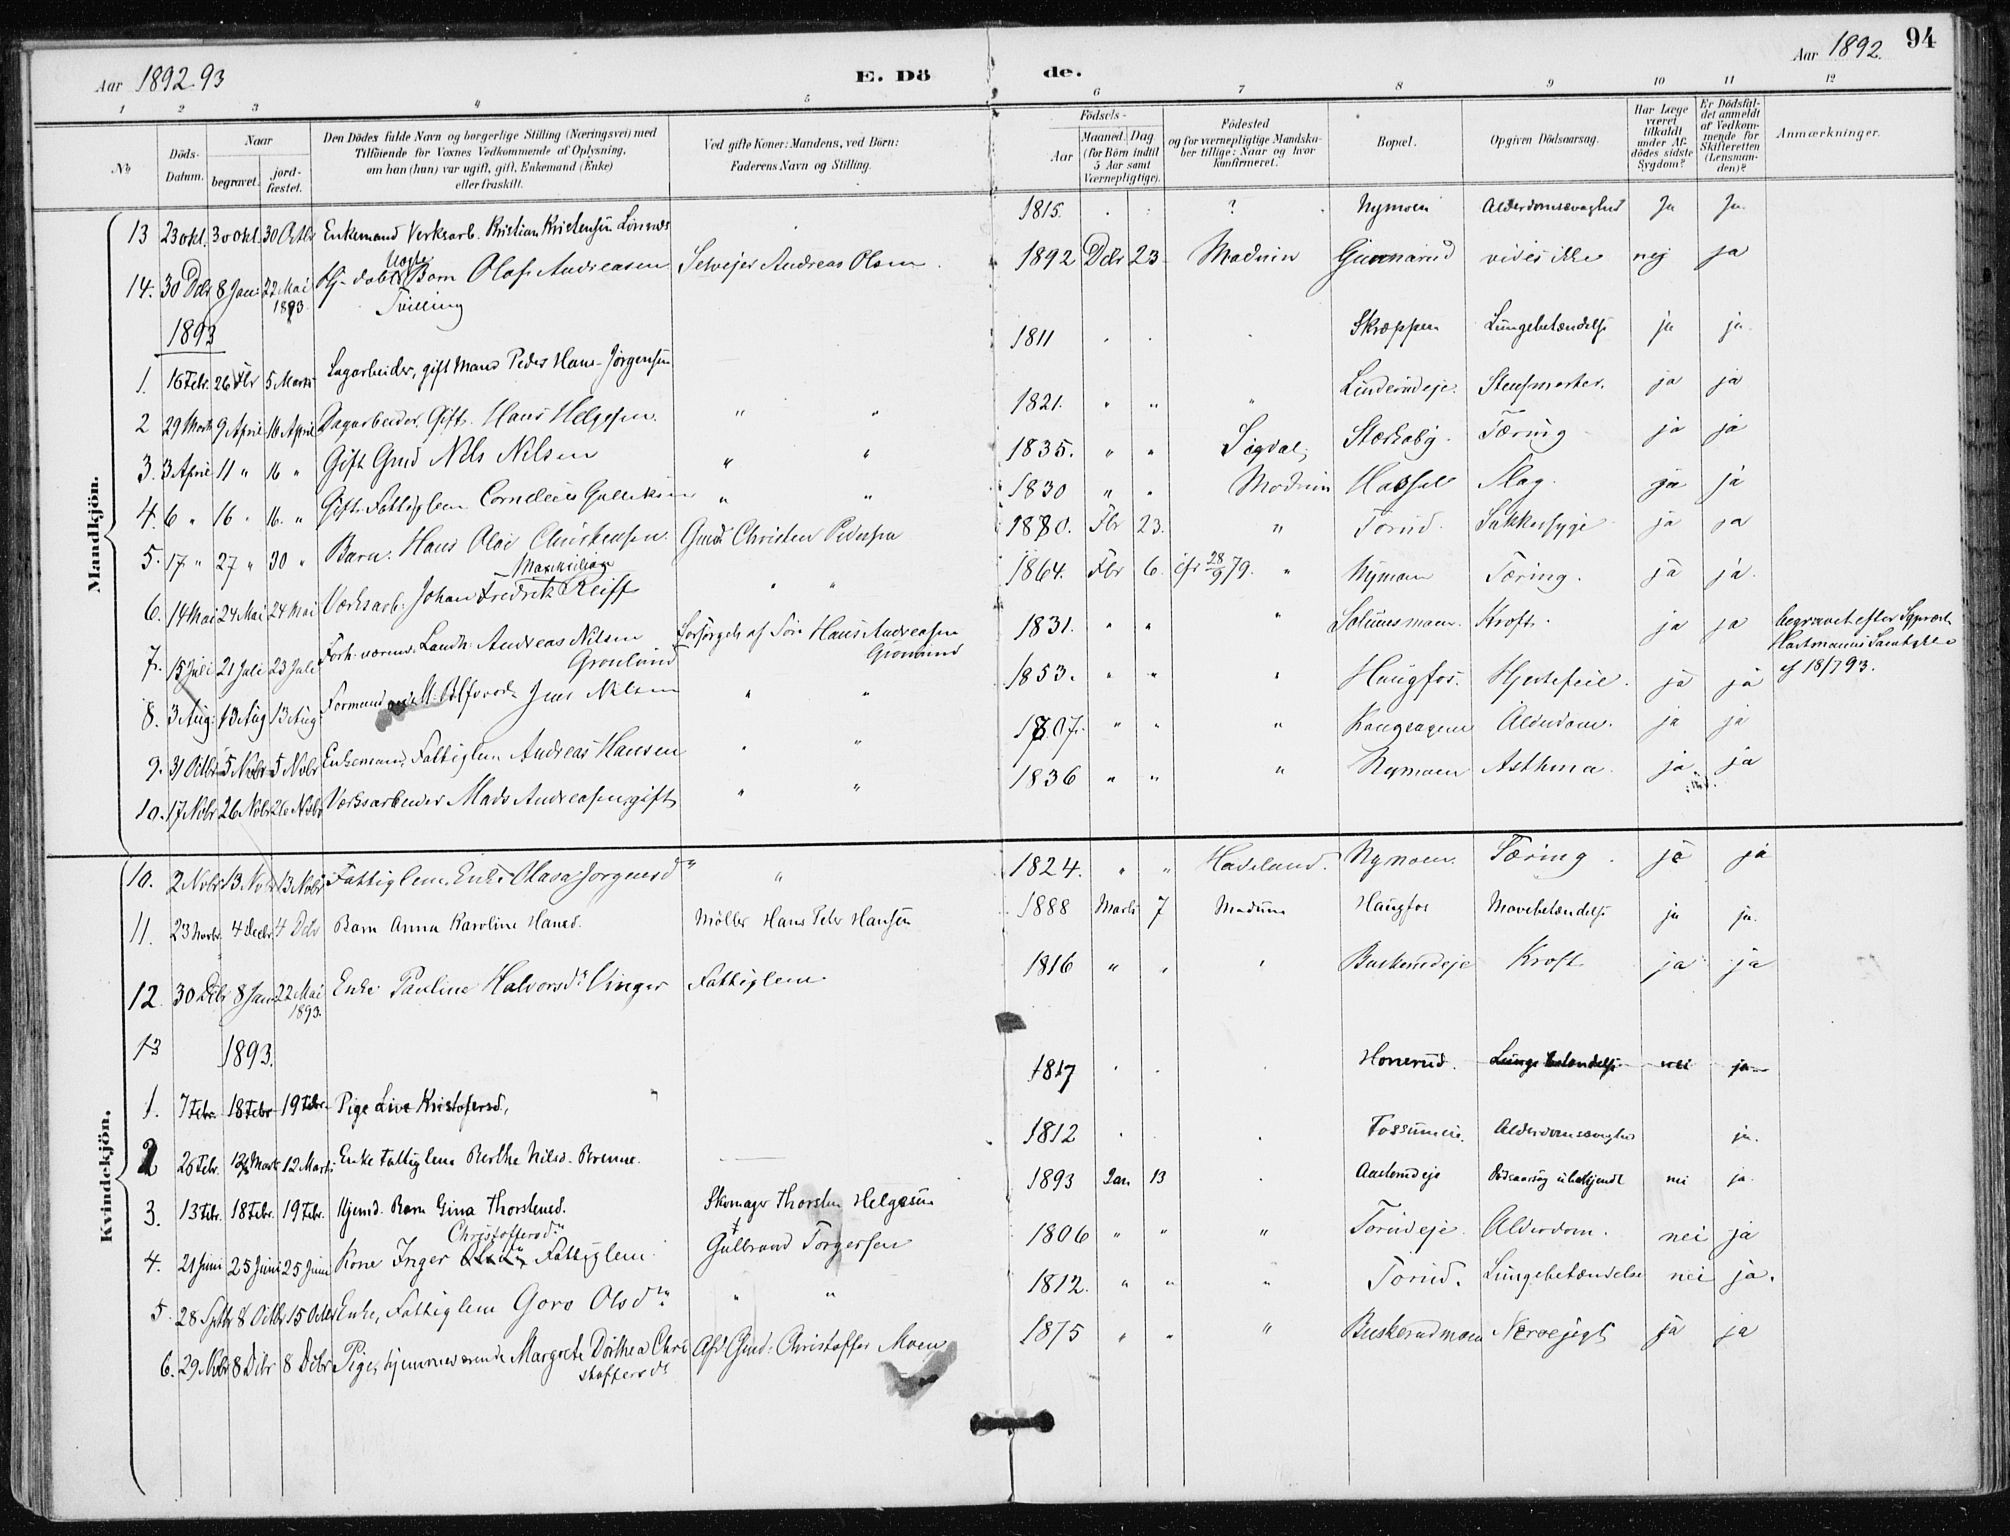 94
Aar 1892.93 E. Döde. Aar 1892.
1 2 3 4 5 6 7 8 9 10 11 12
No
Döds-Datum.
Naar
begravet.
jord-fæstet.
Den Dödes fulde Navn og borgerlige Stilling (Næringsvei) med
Tilföiende for Voxnes Vedkommende af Oplysning,
om han (hun) var ugift, gift, Enkemand (Enke)
eller fraskilt.
Ved gifte Koner: Mandens, ved Börn:
Faderens Navn og Stilling.
Födsels-
Aar
Maaned. Dag
(for Börn indtil
5 Aar samt
Værnepligtige).
Födested
og for værnepligtige Mandska-
ber tillige: Naar og hvor
konfirmeret.
Bopæl.
Opgiven Dödsaarsag.
Har Læge
været
tilkaldt
under Af-
dödes sidste
Sygdom?
Er Dödsfal-
det anmeldt
af Vedkom-
mende for
Skifteretten
(Lensman-
den)?
Anmærkninger.
Mandkjön.
13 23 okt. 30 okt. 30 Octbr Enkemand Verksarb. Kristian Kristensen 1815. ? Nymoen Alderdomssvaghed Ja Ja
14. 30 Dcbr 8 Jan: 22 Mai 1893. Hj-døbt Barn Olaf Andreasen Tvilling Selvejer Andreas Olsen 1892 Dcbr 23 Modum Gunnarud vides ikke nej ja
1893
1. 16 Febr. 26 Fbr 5 Marts Dagarbeider, gift Mand Peder Hans Jørgensen 1811 Skræppen Lungebetændelse ja ja.
2 29 Marts 9 April 16 April Dagarbeider. Gift. Hans Helgesen. " " 1821. " " " Linderudeje. Stensmerter. ja ja
3. 3 April 11 " 16 " Gift Gmd Nils Nilsen " " 1835. " " Sigdal, Stærkeby. Tæring ja ja
4. 6 " 16 " 16. " Gift. Fattiglem Cornelius Gulliksen " " 1830 " " Modum Hassel Slag. ja ja
5. 17 " 27 " 30 " Barn. Hans Olai Christensen. Gmd. Christen Pedersen 1880. Fbr 23. " Torud. Sukkersyge ja ja
6. 14 Mai 24 Mai 24 Mai Værksarb: Johan Fredrik Maximilian Reiff " " 1864. Fbr 6. cfr 28/9 79. " Nymoen Tæring. ja ja.
7. 15 Juli 21 Juli 23 Juli Forh. værend. Landh. Andreas Nilsen Grønlund Forsørges af Søn Hans Andreasen Grønlund 1831. " " " Solumsmoen. Kræft. ja ja begravet efter Sognepræst Hartmanns Samtykke af 18/7 93.
8. 3 Aug: 13 Aug 13 Aug: Formand Jens Nilsen " " 1853. " " " Haugfos. Hjertefeil. ja ja
9. 31 Octbr 5 Nvbr 5 Nvbr Enkemand, Fattiglem Andreas Hansen " " 1807. " " " Alderdom. ja ja
10. 17 Nvbr 26 Nvbr 26 Nvbr Værksarbeider Mads Andreasen, gift " " 1836 " " " Nymoen Asthma. ja ja
Kvindekjön.
10. 2 Nvbr 13 Nvbr 13 Nvbr Fattiglem. Enke Olava Jørgensd " " 1824. " " Hadeland. Nymoen. Tæring. ja ja
11. 23 Novbr. 4 Decbr. 4 Dcbr Barn Anna Karoline Hansd. Møller Hans Peter Hansen 1888 Marts 7 Modum Haugfos Mavebetændelse ja ja.
12 30 Dcbr 8 Jan 22 Mai 1893. Enke Pauline Halvorsdr Vinger Fattiglem 1816 " " " Buskerudeje Kræft ja ja
13 1893.
1. 7 Febr. 18 Febr 19 Febr. Pige Live Kristofersd, 1817 Honerud. Lungebetændelse nei ja
2 26 Febr. 12 Mart 12 Marts Enke Fattiglem Berthe Nilsd. Brenne. 1812 Fossumeie. Alderdomssvaghed ja.
3. 13 Febr. 18 Febr. 19 Febr. Hjemd. Barn Gina Thorstensd. Skomager Thorsten Helgesen 1893 Jan 13 Aaslerudeje Dødsaarsag ubekjendt nei ja.
4. 21 Juni 25 Juni 25 Juni Kone Inger Christoffersdr Fattiglem. Gulbrand Torgersen 1806 " " " Torudeje. Alderdom. nei ja
5. 28 Sptbr 8 Octbr 15 Octbr Enke, Fattiglem Goro Olsdr " " 1812. " " " Torud. Lungebetændelse nei ja.
6. 29 Nvbr 8 Dcbr 8 Dcbr Pige, hjemmeværende Margrete Dorthea Christoffersdr Afd. Gmd. Christoffer Moen 1875 " " " Buskerudmoen Nervejigt ja ja